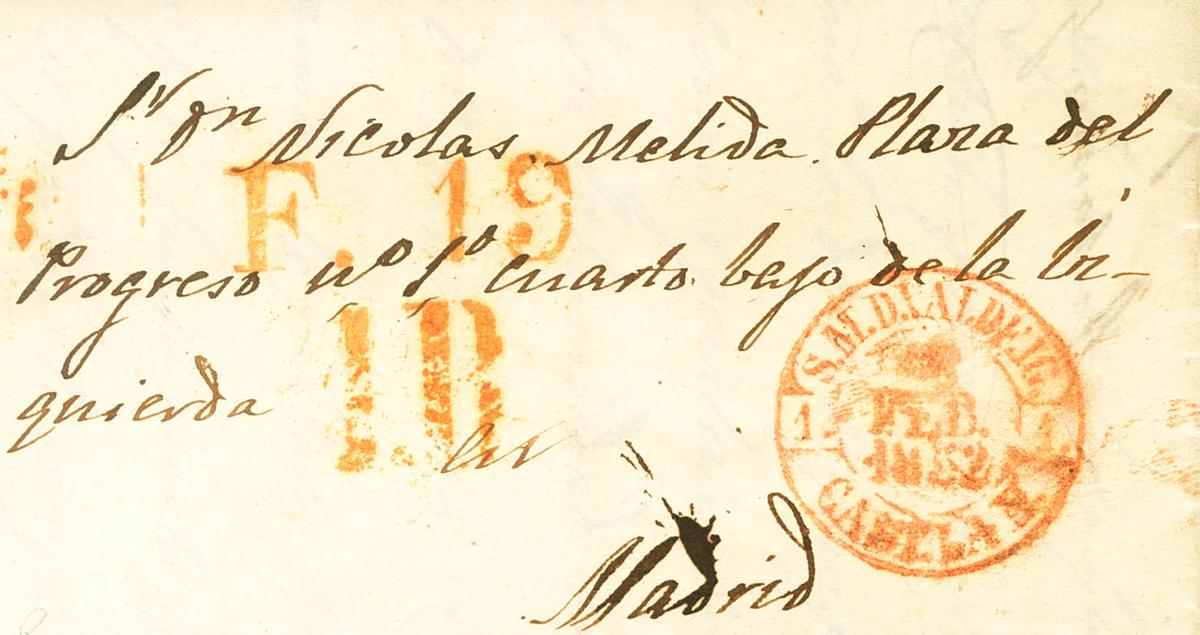 Sr Dn Nicolas Melida Plaza del
F. 19
Progreso nº 1º cuarto bajo de la Iz-
1R
quierda
en
Madrid
S.M.D.VALDEIG.
1.
FEB.
1852
CAST.LA N.